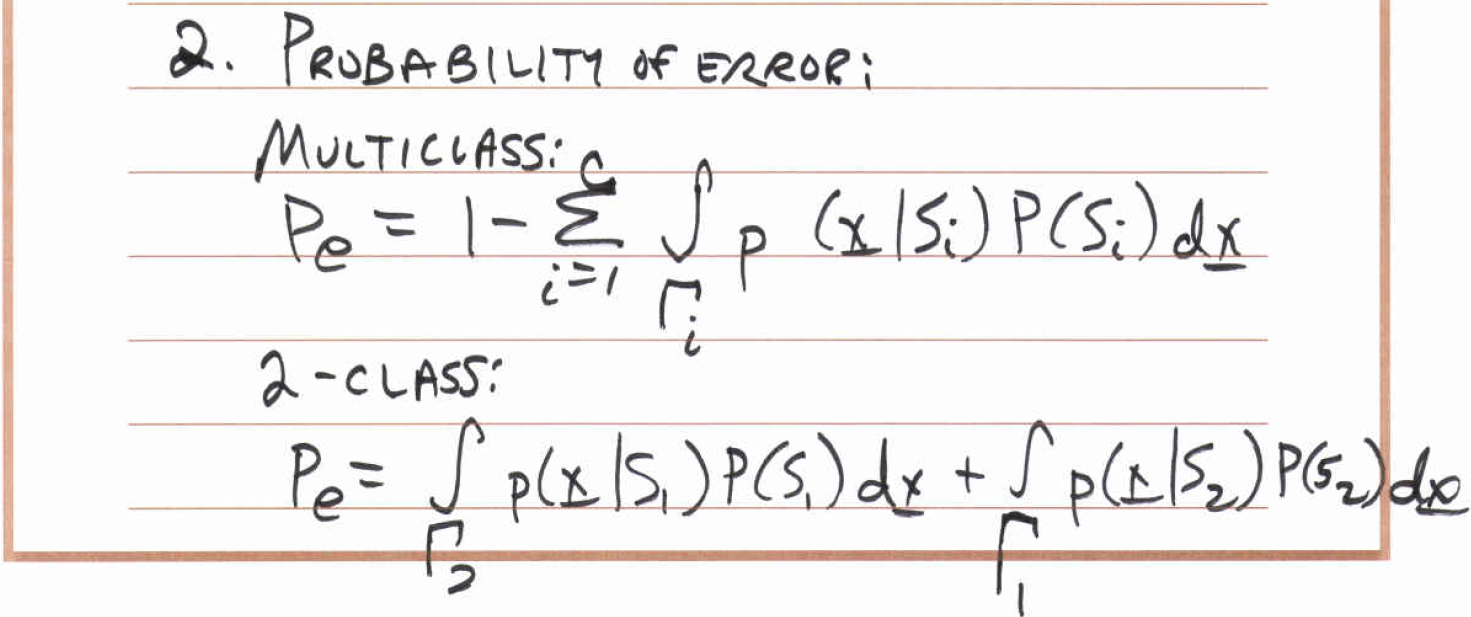 2. PROBABILITY OF ERROR:
MULTICLASS:
Pe = 1 - Σ_{i=1}^{C} ∫_{Γi} p (x̲|Si) P(Si) dx̲
2-CLASS:
Pe = ∫_{Γ2} p(x̲|S1) P(S1) dx̲ + ∫_{Γ1} p(x̲|S2) P(S2) dx̲